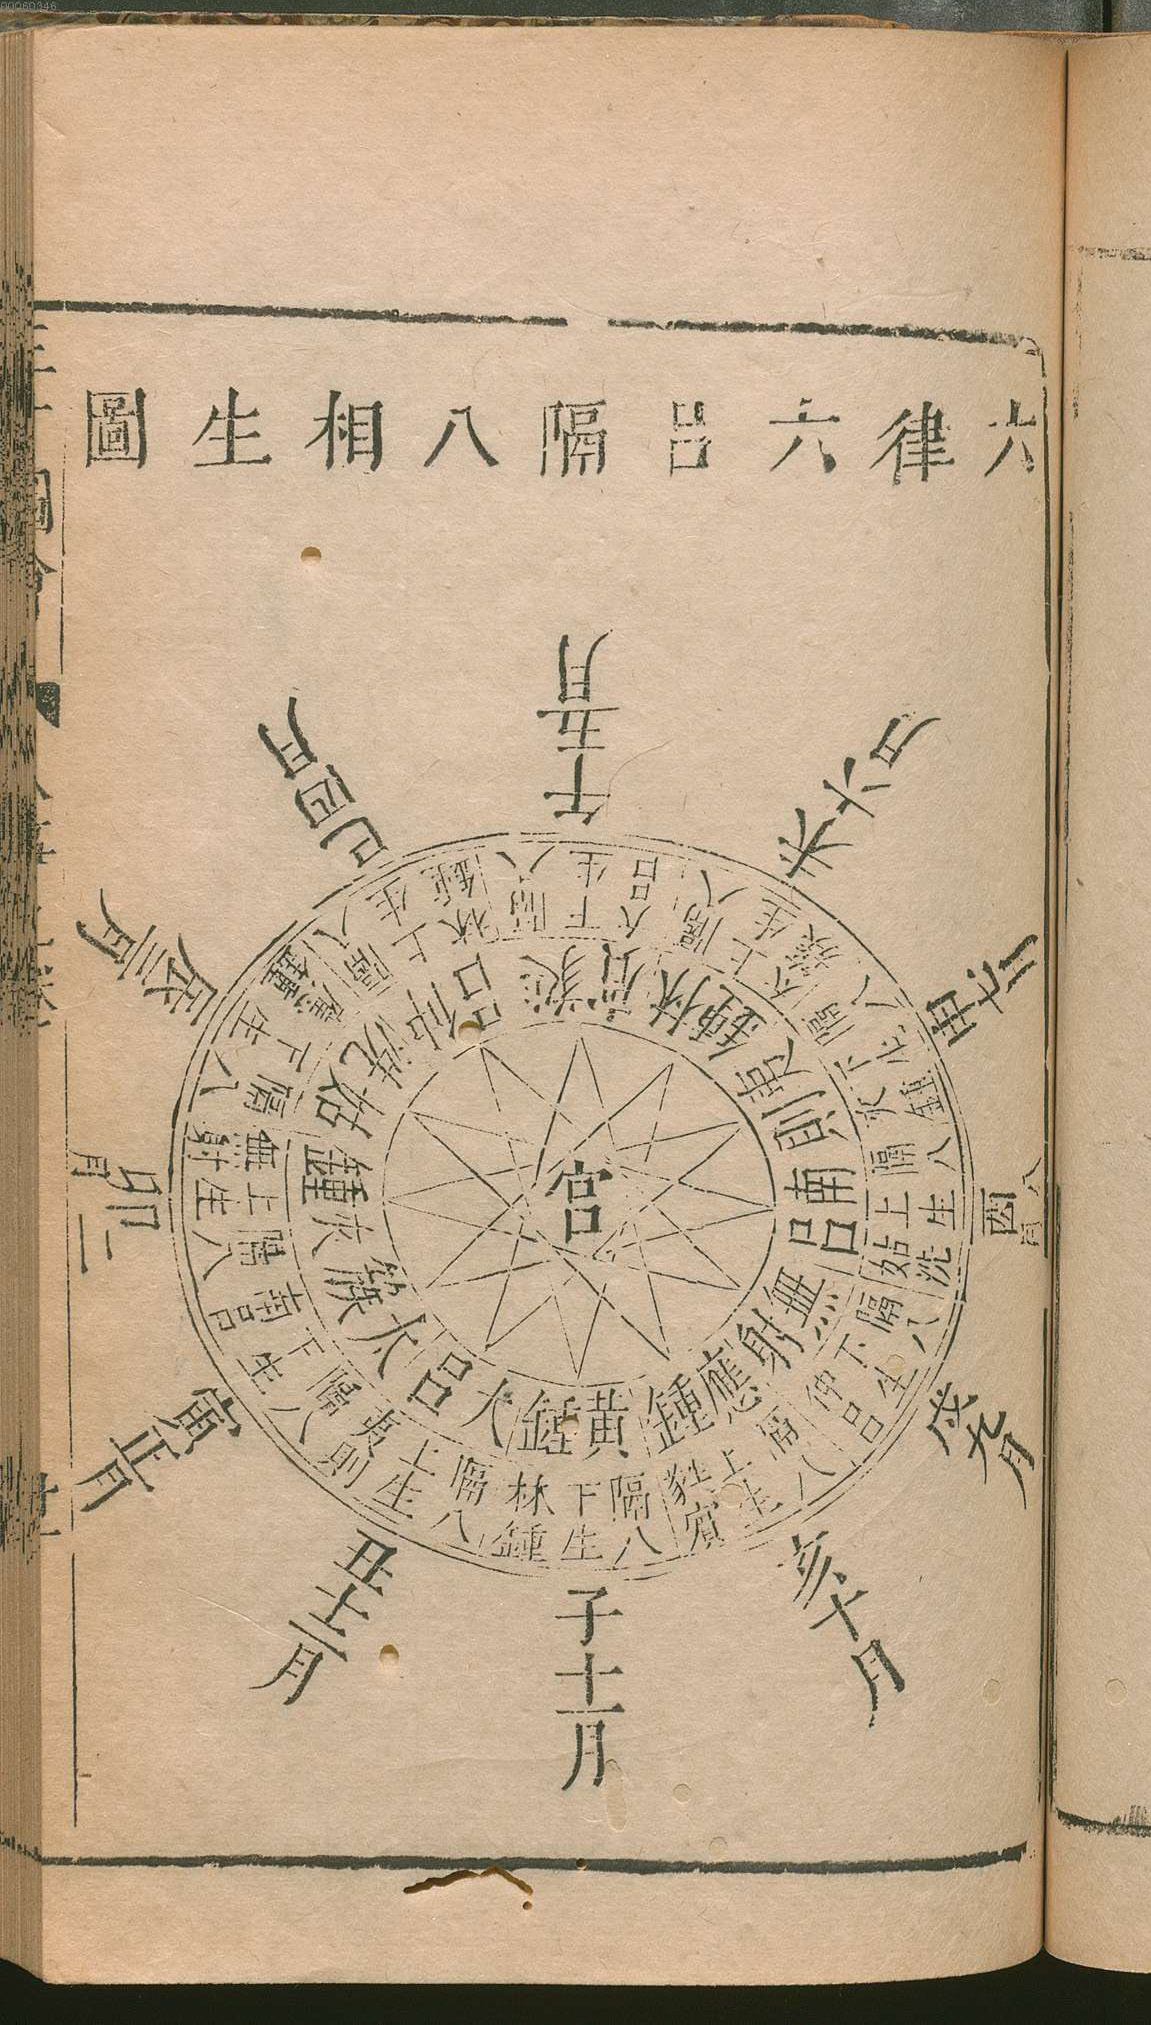 六律六呂隔八相生圖
宮
黃鍾
隔八下生林鍾
子十一月
大呂
隔八上生夷則
丑十二月
太簇
隔八下生南呂
寅正月
夾鍾
隔八上生無射
卯二月
姑洗
隔八下生應鍾
辰三月
仲呂
隔八上生
巳四月
蕤賓
隔八下生大呂
午五月
林鍾
隔八上生太簇
未六月
夷則
隔八下生夾鍾
申七月
南呂
隔八上生姑洗
酉八月
無射
隔八下生仲呂
戌九月
應鍾
隔八上生蕤賓
亥十月